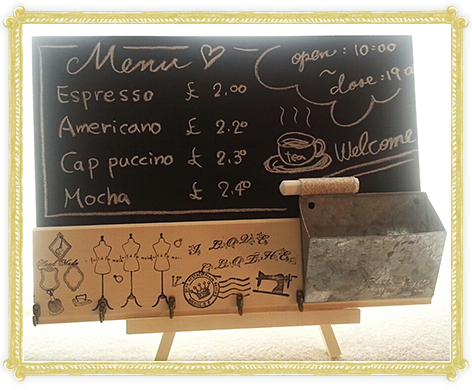 Menu ♡
Espresso £ 2.00
Americano £ 2.20
Cappuccino £ 2.30
Mocha £ 2.40
open : 10:00
~
close : 19:0
tea
Welcome
I LOVE
CLOTHES
Hand Made